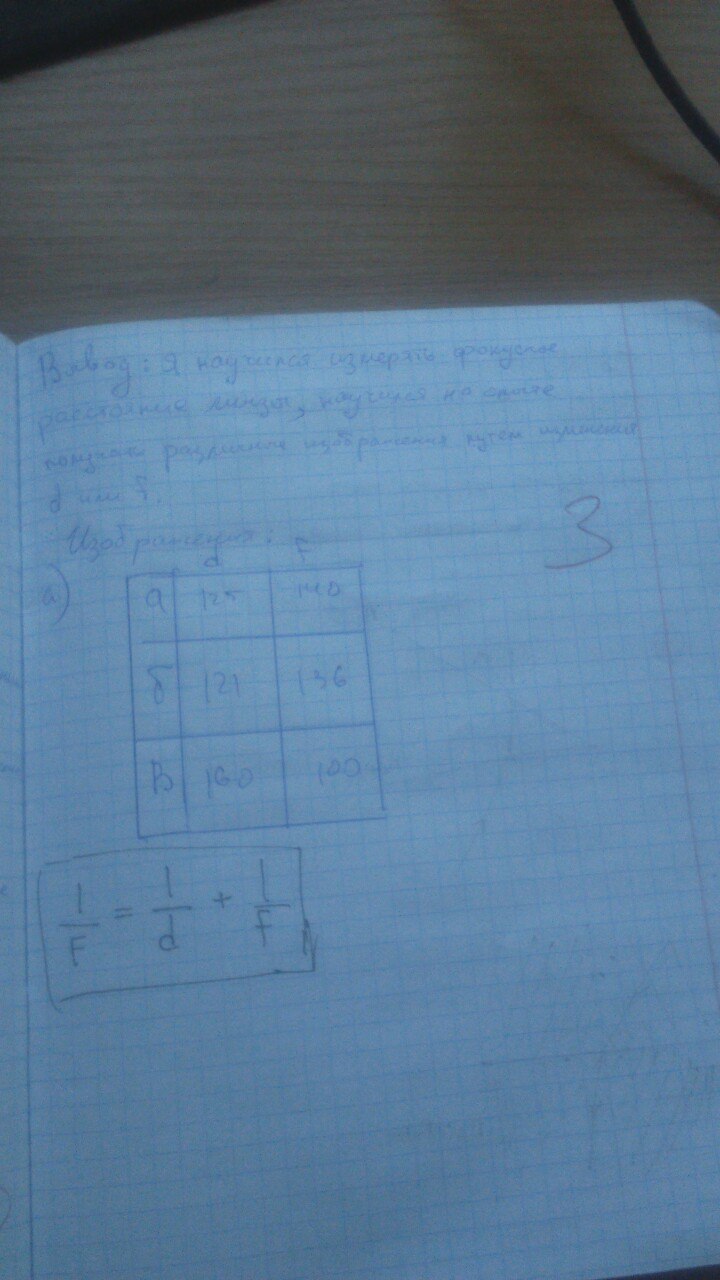 Вывод: Я научился измерять фокусное
расстояние линзы, научился на опыте
получать различные изображения путем изменения
d или f.
3
Изображения:
d F
а)
а 125 140
б 121 136
В 160 100
1/F = 1/d + 1/F